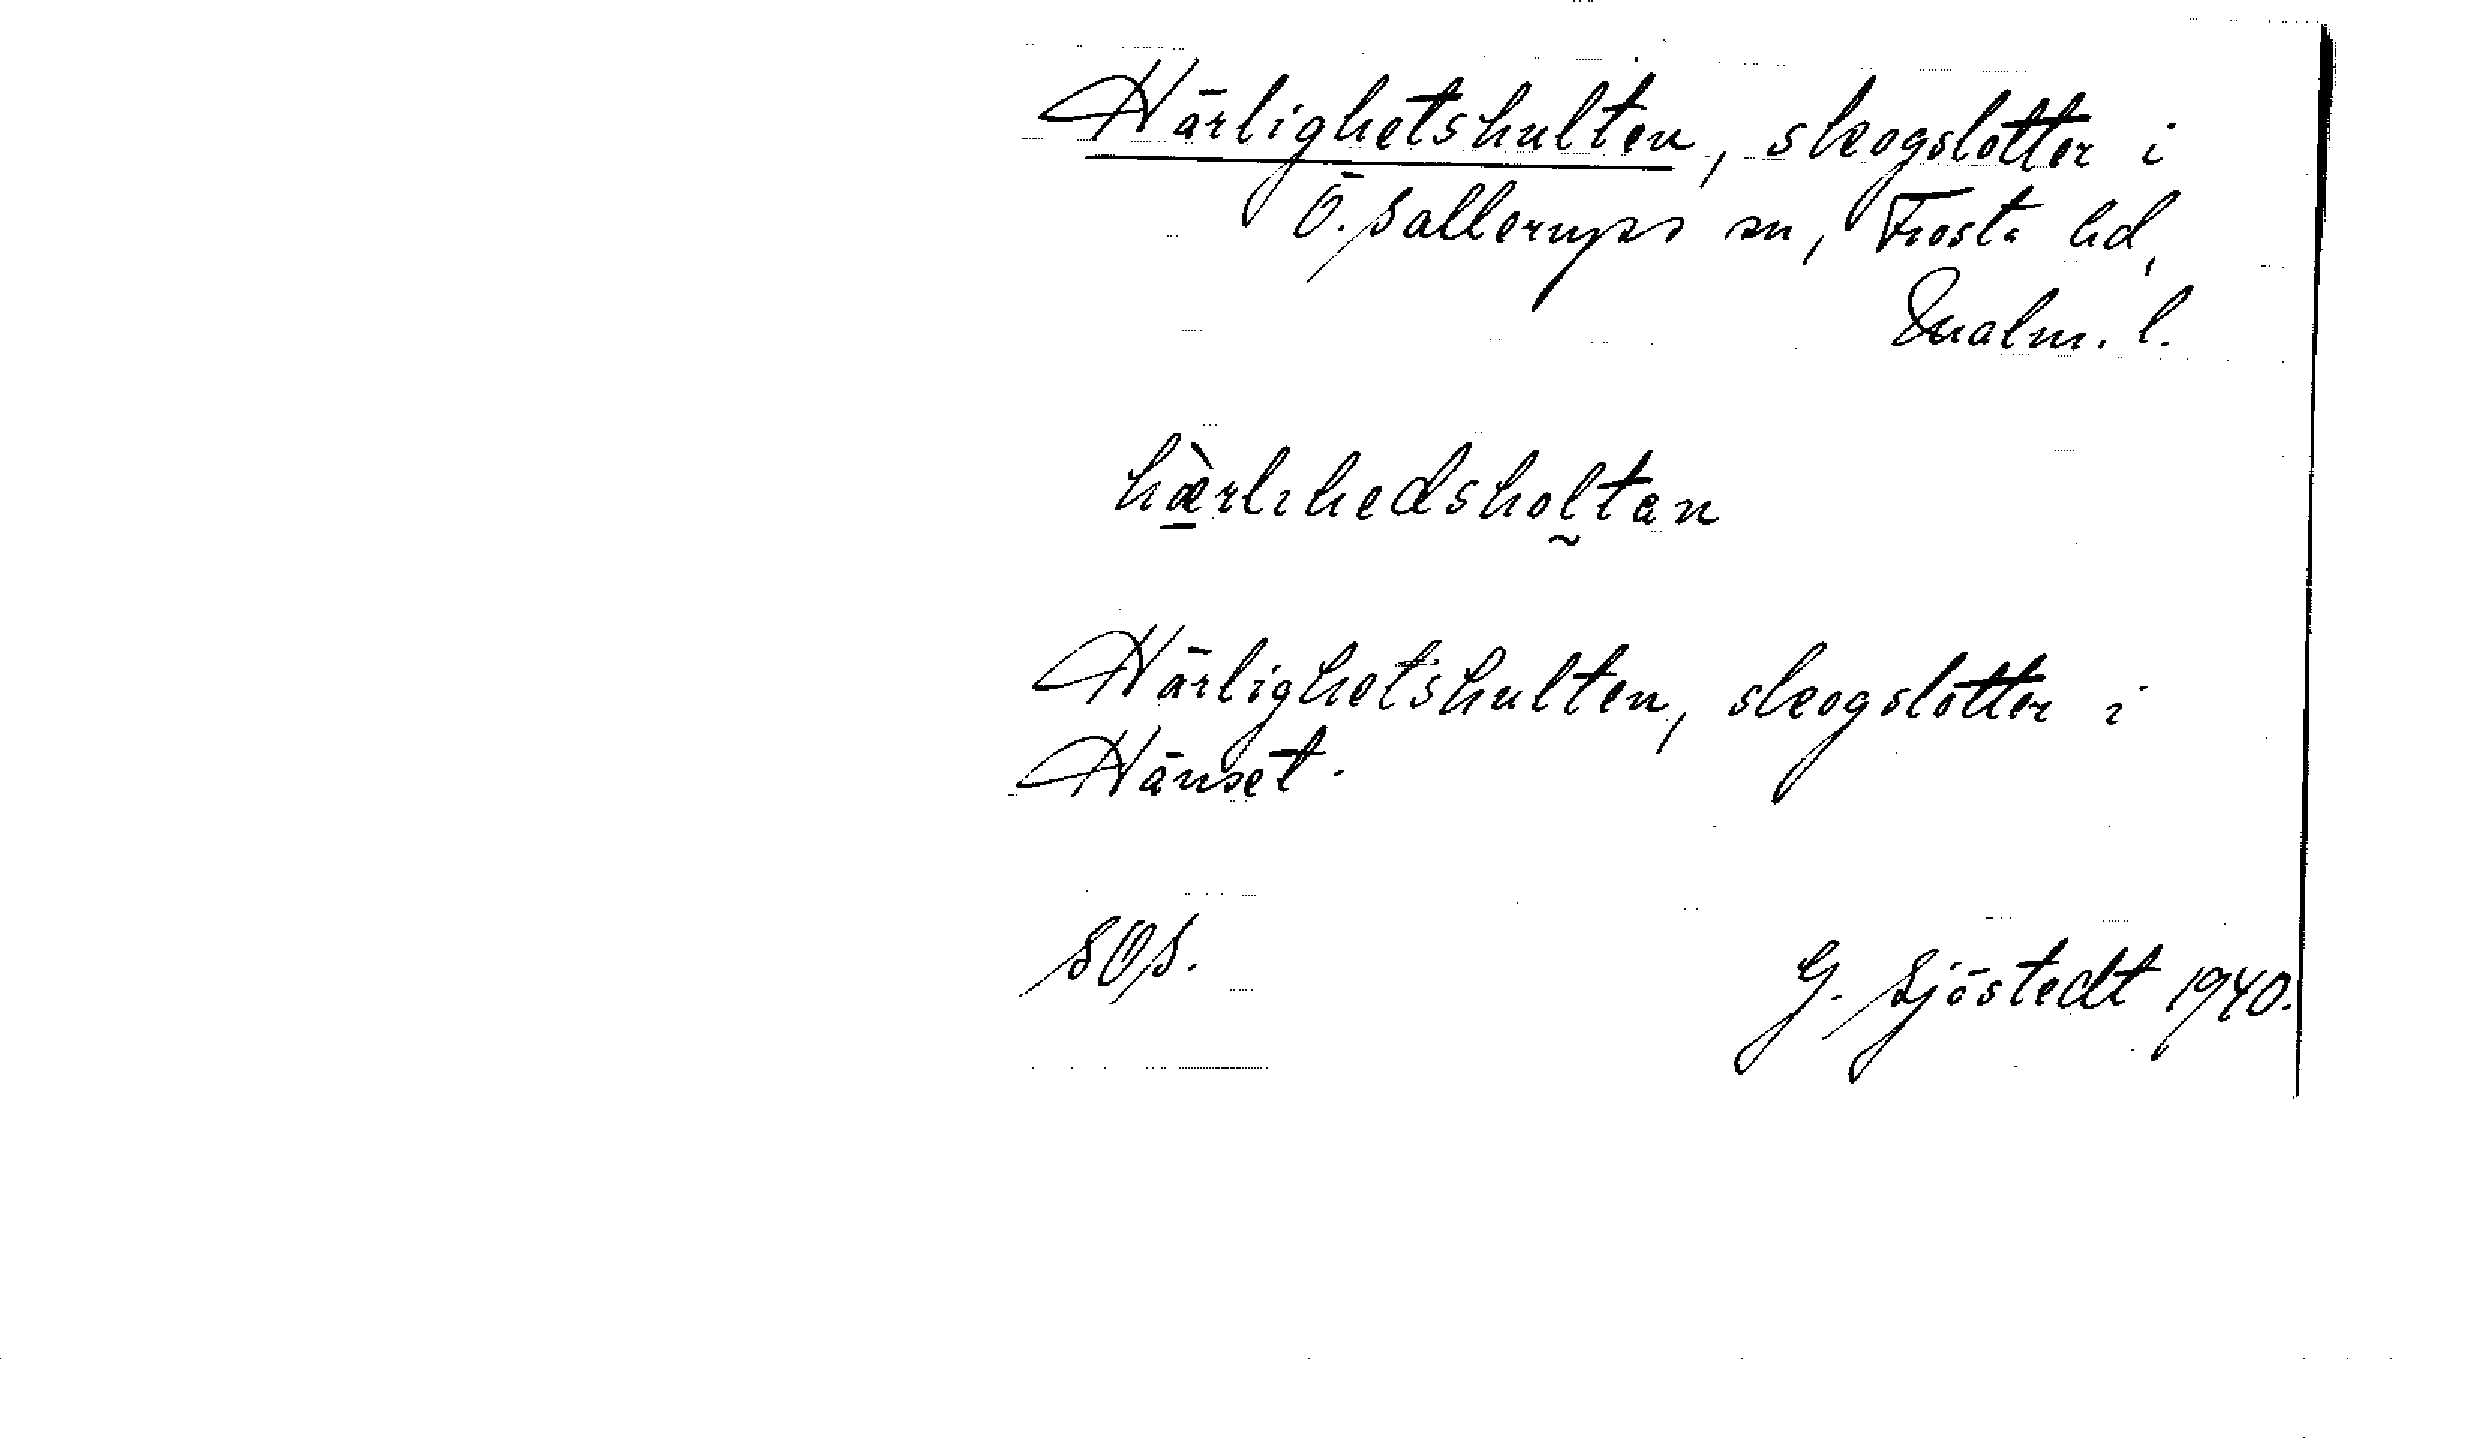 Härlighetshulten, skogslotter i
Ö. Sallerups sn, Frosta hd,
Malm. l.
hæ̀rlıhedsholtan
Härlighetshulten, skogslotter i
Hänset.
SOS.
G. Sjöstedt 1940.